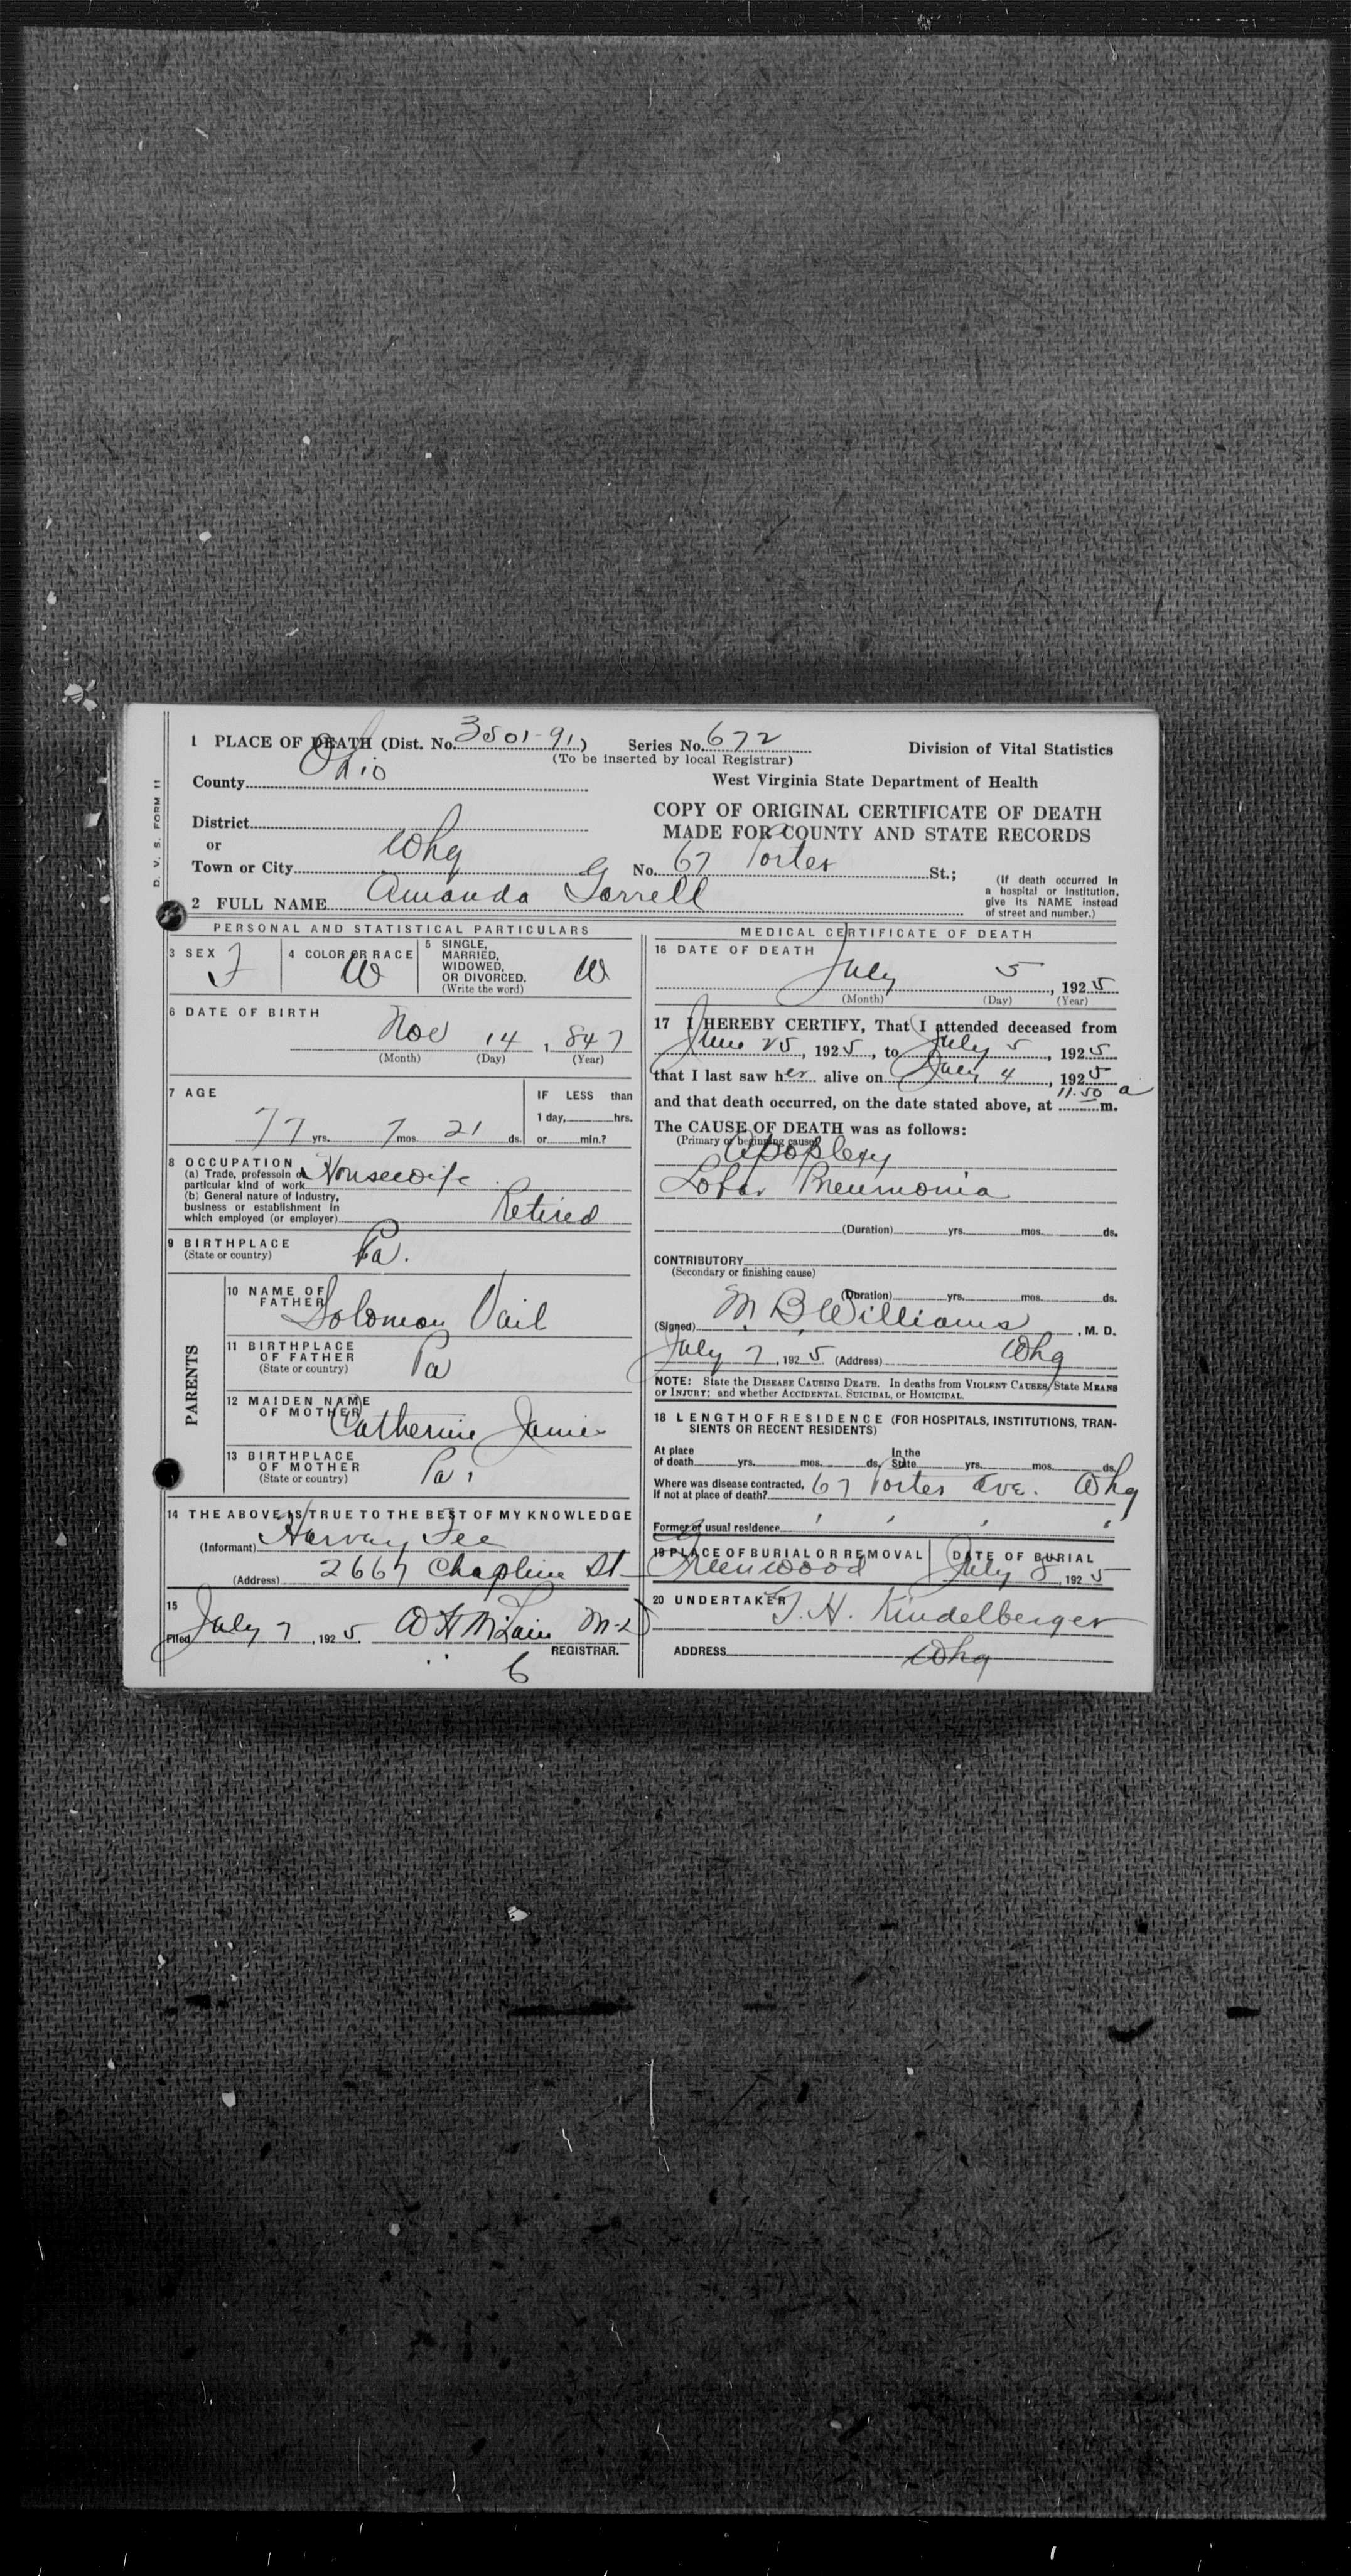 D. V. S. FORM 11
1 PLACE OF DEATH (Dist. No. 3501-91)
Series No. 672
(To be inserted by local Registrar)
County Ohio
District
or
Town or City Whg
No. 67 Porter St.;
(If death occurred in a hospital or institution, give its NAME instead of street and number.)
Division of Vital Statistics
West Virginia State Department of Health
COPY OF ORIGINAL CERTIFICATE OF DEATH
MADE FOR COUNTY AND STATE RECORDS
2 FULL NAME Amanda Garrell
PERSONAL AND STATISTICAL PARTICULARS
3 SEX F
4 COLOR OR RACE W
5 SINGLE, MARRIED, WIDOWED, OR DIVORCED. (Write the word) W
6 DATE OF BIRTH
Nov 14, 847
(Month) (Day) (Year)
7 AGE
77 yrs. 7 mos 21 ds.
IF LESS than
1 day, hrs.
or min.?
8 OCCUPATION
(a) Trade, professoin or
particular kind of work Housewife
(b) General nature of Industry,
business or establishment in
which employed (or employer) Retired
9 BIRTHPLACE
(State or country) Pa.
PARENTS
10 NAME OF
FATHER Solomon Vail
11 BIRTHPLACE
OF FATHER
(State or country) Pa
12 MAIDEN NAME
OF MOTHER Catherine
13 BIRTHPLACE
OF MOTHER
(State or country) Pa.
14 THE ABOVE IS TRUE TO THE BEST OF MY KNOWLEDGE
(Informant) Harvey Fee
(Address) 2667 Chapline St
15
Filed July 7, 1925. W H McLain M.D
REGISTRAR.
6
MEDICAL CERTIFICATE OF DEATH
16 DATE OF DEATH
July 5, 1925
(Month) (Day) (Year)
17 I HEREBY CERTIFY, That I attended deceased from
June 25, 1925, to July 5, 1925
that I last saw her alive on July 4, 1925
and that death occurred, on the date stated above, at 11.50 a m.
The CAUSE OF DEATH was as follows:
(Primary or beginning cause)
Apoplexy
Lobar Pneumonia
(Duration) yrs. mos. ds.
CONTRIBUTORY
(Secondary or finishing cause)
(Duration) yrs. mos. ds.
(Signed) M. B. Williams, M. D.
July 7, 1925 (Address) Whg
NOTE: State the DISEASE CAUSING DEATH. In deaths from VIOLENT CAUSES, State MEANS
OF INJURY; and whether ACCIDENTAL, SUICIDAL, or HOMICIDAL.
18 LENGTH OF RESIDENCE (FOR HOSPITALS, INSTITUTIONS, TRAN-
SIENTS OR RECENT RESIDENTS)
At place
of death yrs. mos. ds.
In the
State yrs. mos. ds.
Where was disease contracted,
If not at place of death? 67 Porter Ave. Whg
Former or usual residence
19 PLACE OF BURIAL OR REMOVAL
Greenwood
DATE OF BURIAL
July 8, 1925
20 UNDERTAKER
J. H. Kindelberger
ADDRESS Whg